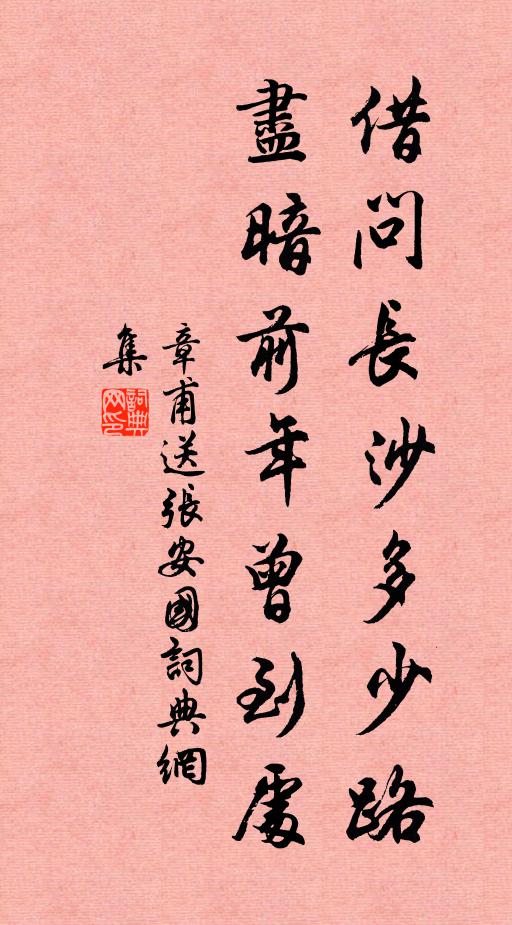 借問長沙多少路
盡暗前年曾到處
章甫送張安國詞典網
集
詞典網印